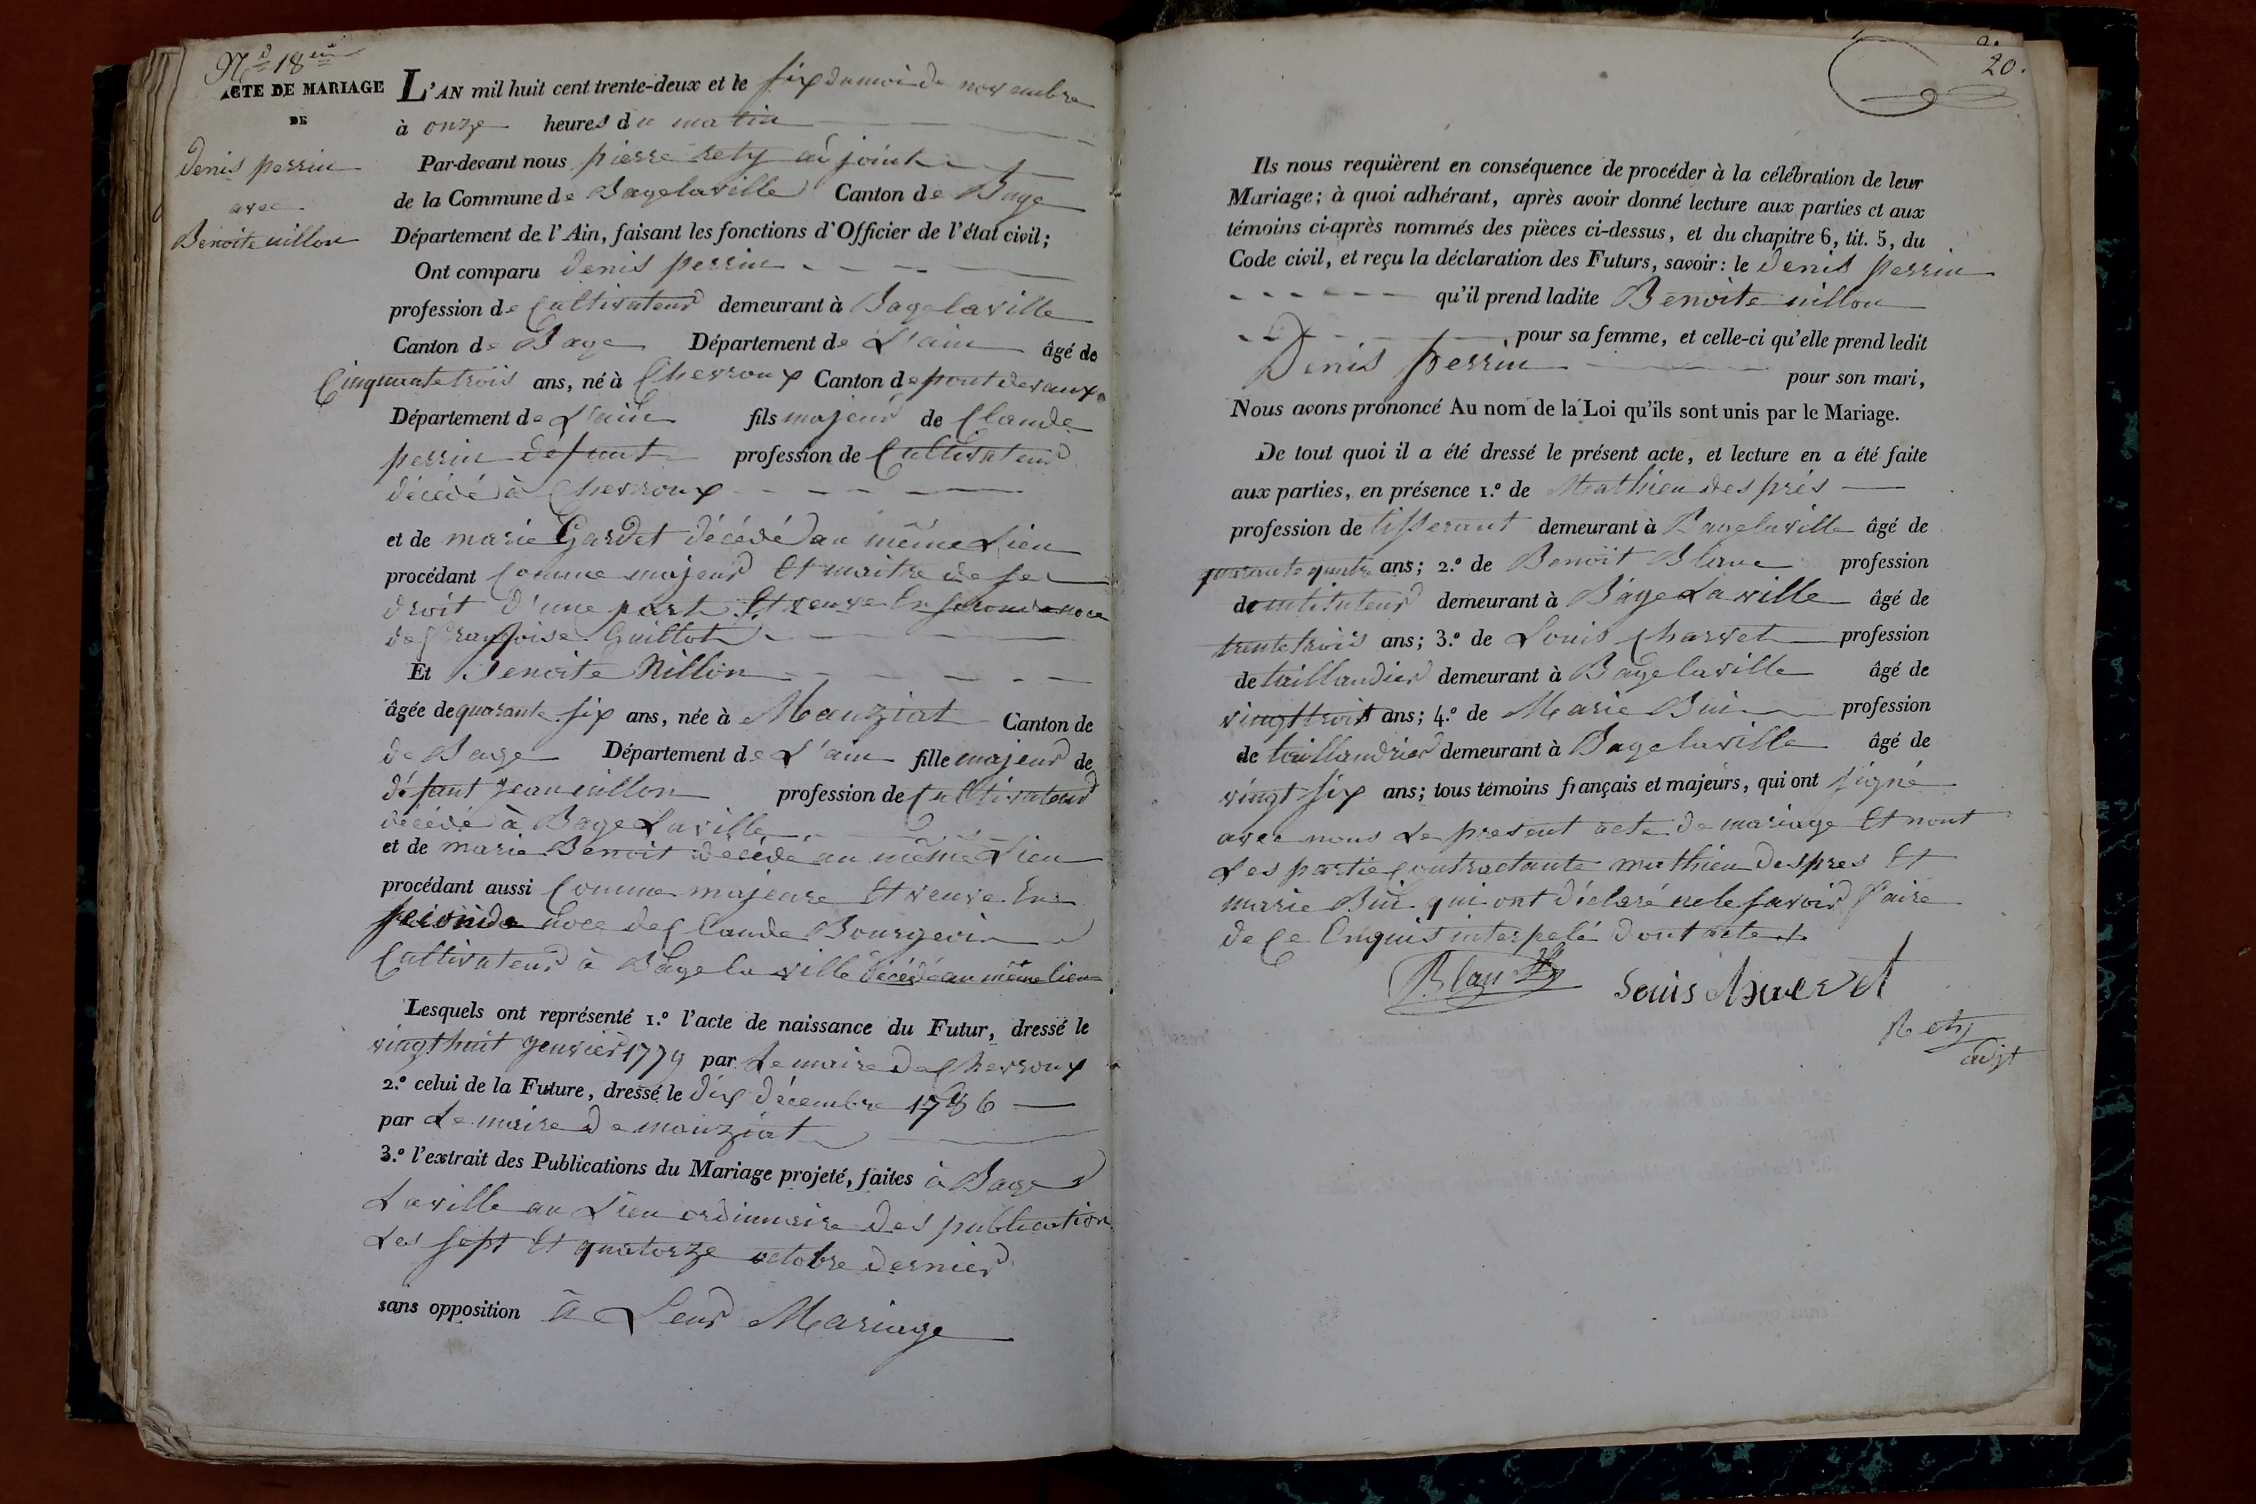 N.° 18 eme
ACTE DE MARIAGE
DE
Denis perrin
avec
Benoite nillon
L'AN mil huit cent trente-deux et le six du moi de novembre
à onze heures du matin
Par-devant nous pierre rety adjoint
de la Commune de Bagelaville Canton de Bage
Département de l'Ain, faisant les fonctions d'Officier de l'état civil;
Ont comparu denis perrin
profession de Cultivateur demeurant à Bagelaville
Canton de Bage Département de L'ain âgé de
Cinquante trois ans, né à Chevroux Canton de pontdevaux
Département de L'ain fils majeur de Claude
perrin défunt profession de Cultivateur
décédé à Chevroux
et de marie Gardet décédé au même Lieu
procédant Comme majeur Et maitre de se
droit d'une part Et veuve En seconde noce
de françoise Guillot
Et Benoite Nillon
âgée de quarante six ans, née à Manziat Canton de
de Bage Département de L'ain fille majeur de
défunt Jean nillon profession de Cultivateur
décédé à Bage Laville
et de marie Benoit décédé au même Lieu
procédant aussi Comme majeure Et veuve En
seconde noce de Claude Bourgeois
Cultivateur à Bage la ville décédé au même lieu
Lesquels ont représenté 1.° l'acte de naissance du Futur, dressé le
vingt huit Jenvier 1779 par Le maire de Chevroux
2.° celui de la Future, dressé le dix décembre 1786
par Le maire de manziat
3.° l'extrait des Publications du Mariage projeté, faites à Bage
Laville au Lieu ordinnaire des publication
Les sept Et quatorze octobre dernier
sans opposition à Leur Mariage
20.
Ils nous requièrent en conséquence de procéder à la célébration de leur
Mariage; à quoi adhérant, après avoir donné lecture aux parties et aux
témoins ci-après nommés des pièces ci-dessus, et du chapitre 6, tit. 5, du
Code civil, et reçu la déclaration des Futurs, savoir: le denis perrin
qu'il prend ladite Benoite nillon
pour sa femme, et celle-ci qu'elle prend ledit
Denis perrin pour son mari,
Nous avons prononcé Au nom de la Loi qu'ils sont unis par le Mariage.
De tout quoi il a été dressé le présent acte, et lecture en a été faite
aux parties, en présence 1.° de Mathieu desprès
profession de tisserant demeurant à Bagelaville âgé de
quarante quatre ans; 2.° de Benoit Blanc profession
de intituteur demeurant à Bage Laville âgé de
trente trois ans; 3.° de Louis Charvet profession
de taillandier demeurant à Bagelaville âgé de
vingt trois ans; 4.° de Marie Bui profession
de taillandrier demeurant à Bagelaville âgé de
vingt six ans; tous témoins français et majeurs, qui ont signé
avec nous Le present acte de mariage Et nont
Les partie Contractante mathieu despres Et
marie Bui qui ont déclaré ne le savoir faire
de Ce Enquis interpelé dont acte
Blanc
Louis Charvet
Rety
adjt